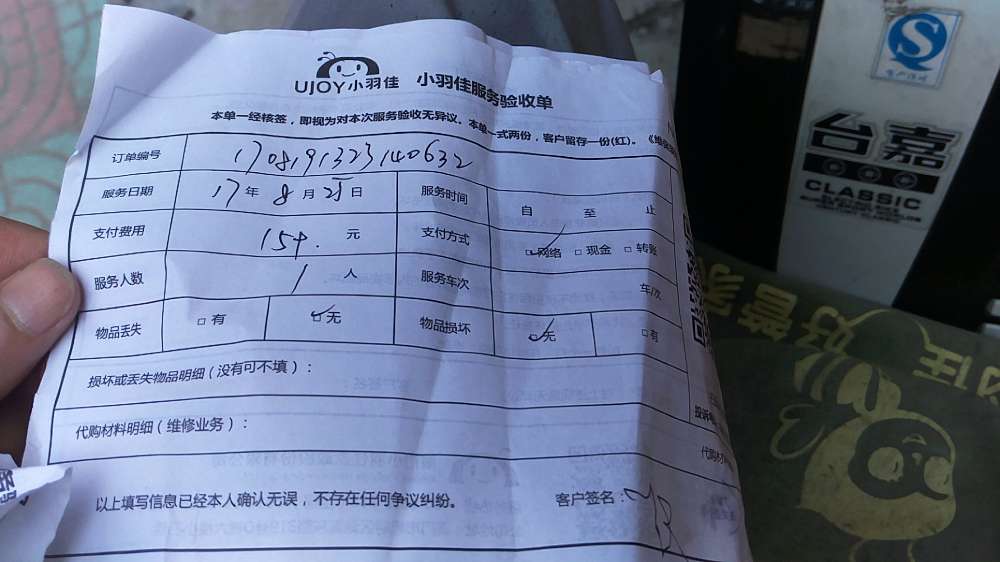 UJOY小羽佳 小羽佳服务验收单
本单一经核签，即视为对本次服务验收无异议。本单一式两份，客户留存一份(红)。
订单编号 1708191323140632
服务日期 17年8月25日 服务时间 自 至 止
支付费用 154. 元 支付方式 ☑网络 □现金 □转账
服务人数 1 人 服务车次 车/次
物品丢失 □有 ☑无 物品损坏 ☑无 □有
损坏或丢失物品明细（没有可不填）：
代购材料明细（维修业务）：
以上填写信息已经本人确认无误，不存在任何争议纠纷。 客户签名：
投诉
代购材
台嘉
CLASSIC
好管家